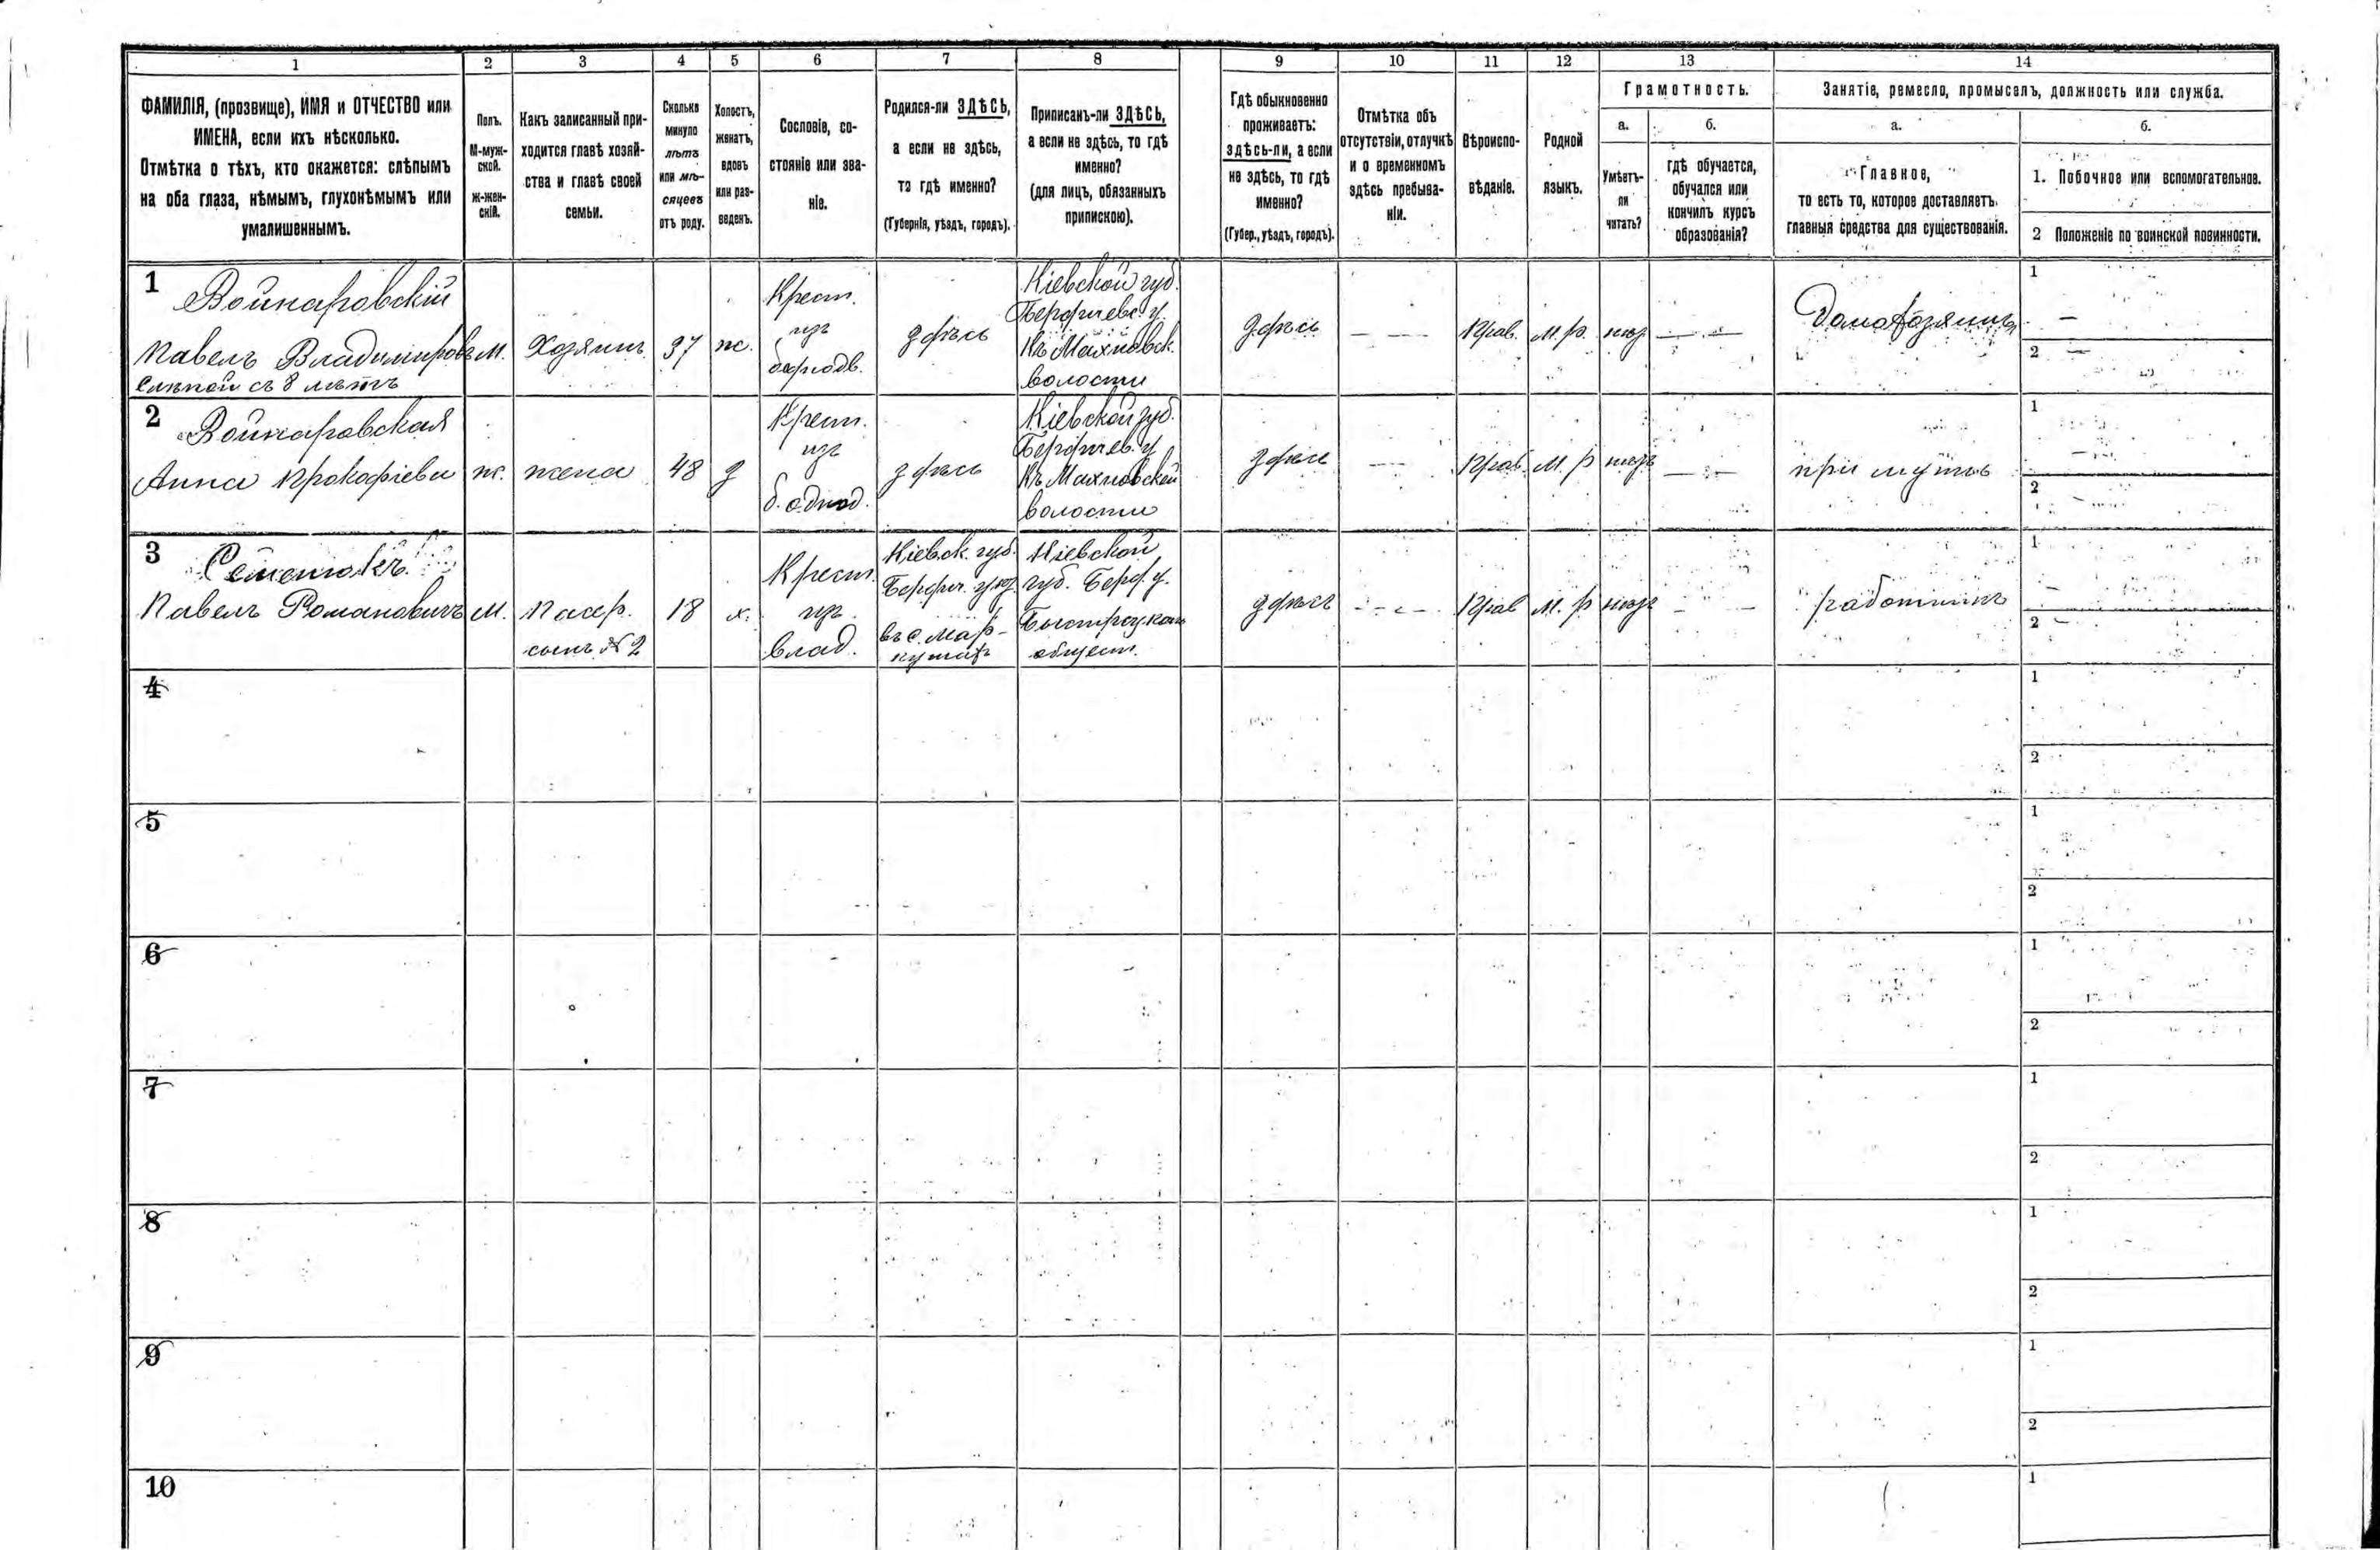 1 2 3 4 5 6 7 8 9 10 11 12 13 14
ФАМИЛІЯ, (прозвище), ИМЯ и ОТЧЕСТВО или
ИМЕНА, если ихъ нѣсколько.
Отмѣтка о тѣхъ, кто окажется: слѣпымъ
на оба глаза, нѣмымъ, глухонѣмымъ или
умалишеннымъ.
Полъ.
М-муж-
ской.
ж-жен-
скій.
Какъ записанный при-
ходится главѣ хозяй-
ства и главѣ своей
семьи.
Сколько
минуло
лѣтъ
или мѣ-
сяцевъ
отъ роду.
Холостъ,
женатъ,
вдовъ
или раз-
веденъ.
Сословіе, со-
стояніе или зва-
ніе.
Родился-ли ЗДѢСЬ,
а если не здѣсь,
то гдѣ именно?
(Губернія, уѣздъ, городъ).
Приписанъ-ли ЗДѢСЬ,
а если не здѣсь, то гдѣ
именно?
(для лицъ, обязанныхъ
припискою).
Гдѣ обыкновенно
проживаетъ:
здѣсь-ли, а если
не здѣсь, то гдѣ
именно?
(Губер., уѣздъ, городъ).
Отмѣтка объ
отсутствіи, отлучкѣ
и о временномъ
здѣсь пребыва-
ніи.
Вѣроиспо-
вѣданіе.
Родной
языкъ.
Грамотность.
а.
Умѣетъ-
ли
читать?
б.
гдѣ обучается,
обучался или
кончилъ курсъ
образованія?
Занятіе, ремесло, промыселъ, должность или служба.
а.
Главное,
то есть то, которое доставляетъ
главныя средства для существованія.
б.
1. Побочное или вспомогательное.
2 Положеніе по воинской повинности.
1
Войнаровскій
Павелъ Владимировъ
Слѣпой съ 8 лѣтъ
М.
Хозяинъ
37
ж.
Крест.
изъ
здѣсь
Кіевской губ.
Бердичевс. у.
Къ Махновск.
волости
здѣсь
— —
Прав.
М. р.
— —
Домохозяинъ
1
—
2 —
2
Войнаровская
Анна Прокофіева
ж.
жена
48
Крест.
изъ
б. однод.
здѣсь
Кіевской губ.
Бердичев. у
Къ Махновской
волости
здѣсь
—
Прав.
М. р
— —
при мужѣ
1
—
2 —
3
Павелъ Романовичъ
М.
Пасер.
сынъ № 2
18
х.
Крест.
изъ
влад.
Кіевск. губ.
Бердич. уѣз.
въ с. Мар-
Кіевской
губ. Берд. у.
общест.
здѣсь
— —
Прав
М. р
— —
работникъ
1
—
2 —
4
1
2
5
1
2
6
1
2
7
1
2
8
1
2
9
1
2
10
1